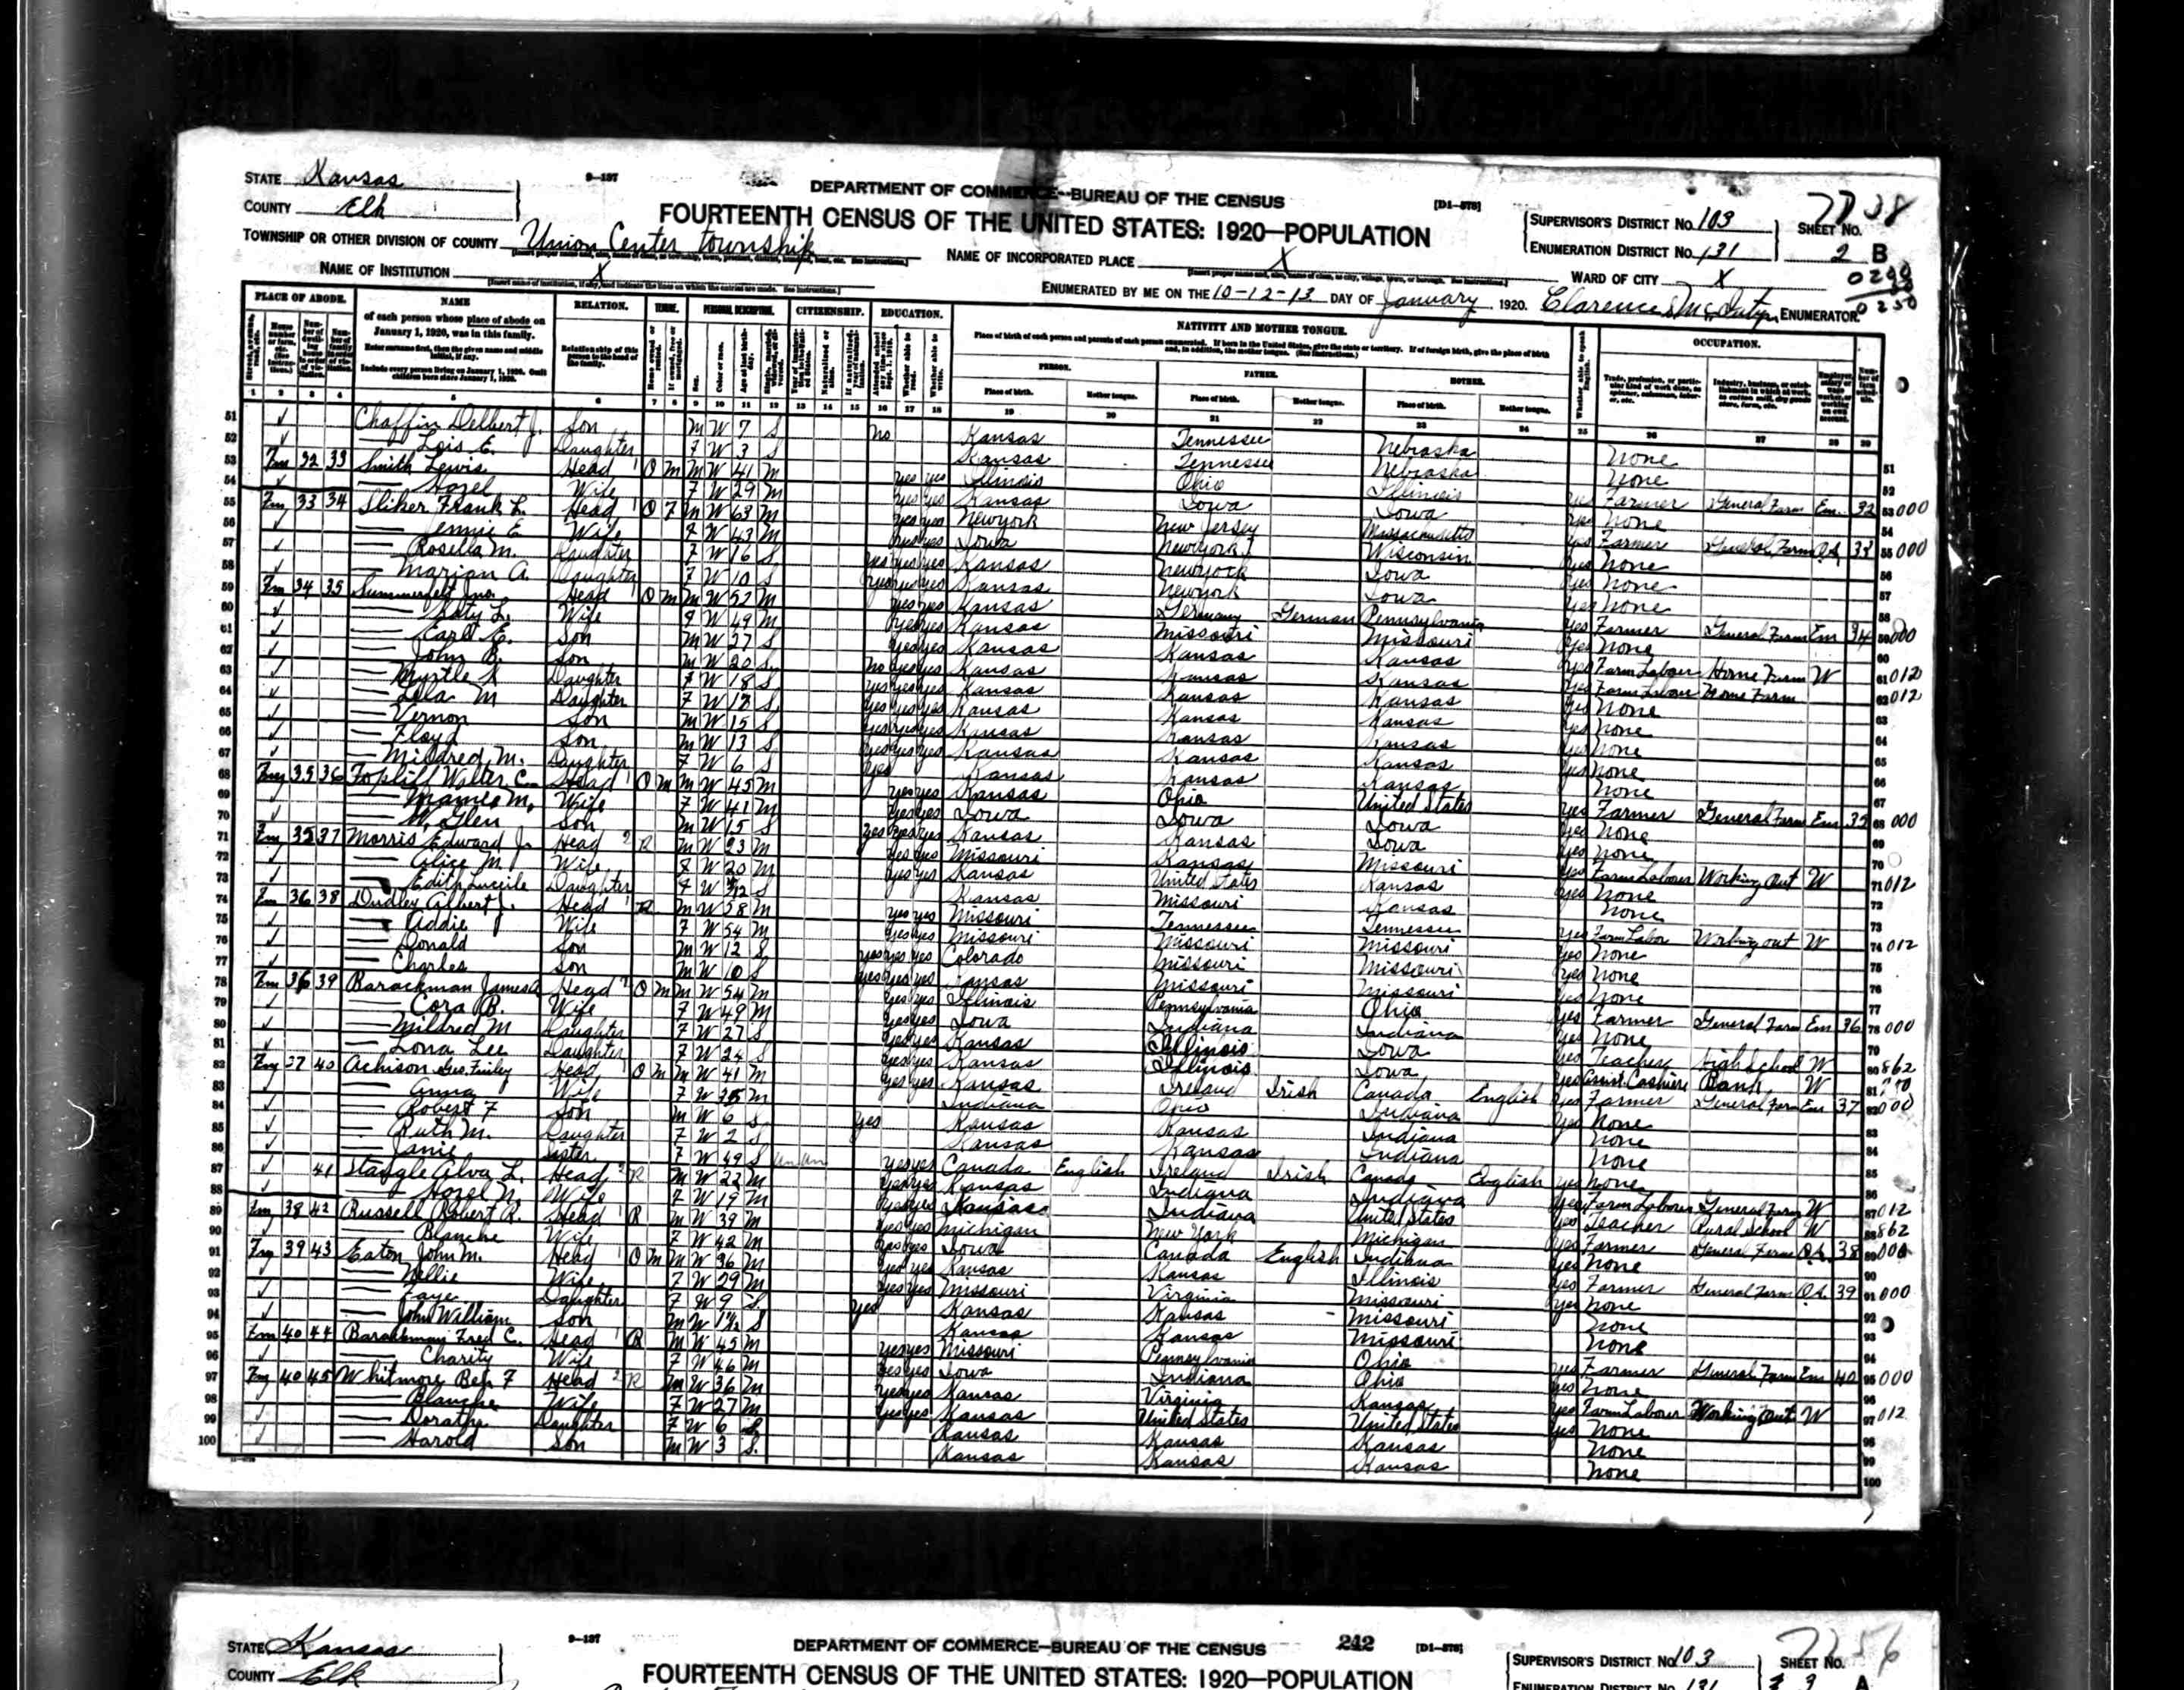 STATE Kansas
COUNTY Elk
9-137
DEPARTMENT OF COMMERCE—BUREAU OF THE CENSUS
[D1-578]
FOURTEENTH CENSUS OF THE UNITED STATES: 1920—POPULATION
SUPERVISOR'S DISTRICT No. 103
ENUMERATION DISTRICT No. 131
SHEET No.
2 B
TOWNSHIP OR OTHER DIVISION OF COUNTY Union Center township
NAME OF INCORPORATED PLACE X
NAME OF INSTITUTION X
WARD OF CITY X
ENUMERATED BY ME ON THE 10-12-13 DAY OF January, 1920. Clarence ENUMERATOR.
PLACE OF ABODE. NAME RELATION. TENURE. PERSONAL DESCRIPTION. CITIZENSHIP. EDUCATION. NATIVITY AND MOTHER TONGUE. OCCUPATION.
of each person whose place of abode on January 1, 1920, was in this family.
Enter surname first, then the given name and middle initial, if any.
Include every person living on January 1, 1920. Omit children born since January 1, 1920.
Relationship of this person to the head of the family.
PERSON. FATHER. MOTHER.
Place of birth. Mother tongue. Place of birth. Mother tongue. Place of birth. Mother tongue.
51 Chaffin Delbert J. Son M W 7 S no Kansas Tennessee Nebraska none
52 Lois E. Daughter F W 3 S Kansas Tennessee Nebraska none
53 Fm 32 33 Smith Lewis Head 1 O M M W 41 M yes yes Illinois Ohio Illinois yes Farmer General Farm Em 32 000
54 Hazel Wife F W 29 M yes yes Kansas Iowa Iowa yes none
55 Fm 33 34 Sliker Frank L. Head 1 O F M W 63 M yes yes New York New Jersey Massachusetts yes Farmer General Farm OA 33 000
56 Jennie E. Wife F W 43 M yes yes Iowa New York Wisconsin yes none
57 Rosella M. Daughter F W 16 S yes yes yes Kansas New York Iowa yes none
58 Marian A. Daughter F W 10 S yes yes yes Kansas New York Iowa yes none
59 Fm 34 35 Head 1 O M M W 52 M yes yes Kansas Germany German Pennsylvania yes Farmer General Farm Em 34 000
60 Katy L. Wife F W 49 M yes yes Kansas Missouri Missouri yes none
61 Earl E. Son M W 27 S yes yes Kansas Kansas Kansas yes Farm Laborer Home Farm W 012
62 John B. Son M W 20 S no yes yes Kansas Kansas Kansas yes Farm Laborer Home Farm 012
63 Myrtle Daughter F W 18 S yes yes yes Kansas Kansas Kansas yes none
64 Lela M Daughter F W S yes yes yes Kansas Kansas Kansas yes none
65 Vernon Son M W 15 S yes yes yes Kansas Kansas Kansas yes none
66 Floyd Son M W 13 S yes yes yes Kansas Kansas Kansas yes none
67 Mildred M. Daughter F W 6 S yes Kansas Kansas Kansas none
68 Fm 35 36 Topliff Walter C. Head 1 O M M W 45 M yes yes Kansas Ohio United States yes Farmer General Farm Em 35 000
69 Mamie M. Wife F W 41 M yes yes Iowa Iowa Iowa yes none
70 W. Glen Son M W 15 S yes yes yes Kansas Kansas Iowa yes none
71 Fm 35 37 Morris Edward J. Head 2 R M W 23 M yes yes Missouri Kansas Missouri yes Farm Laborer Working Out W 012
72 Alice M. Wife F W 20 M yes yes Kansas United States Kansas yes none
73 Edith Lucile Daughter F W S Kansas Missouri Kansas none
74 Fm 36 38 Dudley Albert J. Head 1 R M W 58 M yes yes Missouri Tennessee Tennessee yes Farm Labor Working out W 012
75 Addie Wife F W 54 M yes yes Missouri Missouri Missouri yes none
76 Donald Son M W 12 S yes yes yes Colorado Missouri Missouri yes none
77 Charles Son M W 10 S yes yes yes Kansas Missouri Missouri yes none
78 Fm 36 39 Barackman James A Head 2 O M M W 54 M yes yes Illinois Pennsylvania Ohio yes Farmer General Farm Em 36 000
79 Cora B. Wife F W 49 M yes yes Iowa Indiana Indiana yes none
80 Mildred M Daughter F W 27 S yes yes Kansas Illinois Iowa yes Teacher High School W 862
81 Lona Lee Daughter F W 24 S yes yes Kansas Illinois Iowa yes Assist. Cashiere Bank W
82 Fm 37 40 Achison Geo. Finley Head 1 O M M W 41 M yes yes Kansas Ireland Irish Canada English yes Farmer General Farm Em 37 000
83 Anna Wife F W M Indiana Ohio Indiana yes none
84 Robert F Son M W 6 S yes Kansas Kansas Indiana none
85 Ruth M. Daughter F W 2 S Kansas Kansas Indiana none
86 Janie Sister F W 49 S Un Un yes yes Canada English Ireland Irish Canada English yes none
87 41 Stangle Alva L. Head 2 R M W 22 M yes yes Kansas Indiana Indiana yes Farm Laborer General Farm W 012
88 Hazel N. Wife F W 19 M yes yes Kansas Indiana United States yes Teacher Rural School W 862
89 Fm 38 42 Russell Robert R. Head 1 R M W 39 M yes yes Michigan New York Michigan yes Farmer General Farm OA 38 000
90 Blanche Wife F W 42 M yes yes Iowa Canada English Indiana yes none
91 Fm 39 43 Eaton John M. Head 1 O M M W 36 M yes yes Kansas Kansas Illinois yes Farmer General Farm OA 39 000
92 Nellie Wife F W 29 M yes yes Missouri Virginia Missouri yes none
93 Faye Daughter F W 9 S yes Kansas Kansas Missouri none
94 John William Son M W S Kansas Kansas Missouri none
95 Fm 40 44 Barackman Fred C. Head 1 R M W 45 M yes yes Missouri Pennsylvania Ohio yes Farmer General Farm Em 40 000
96 Charity Wife F W 46 M yes yes Iowa Indiana Ohio yes none
97 Fm 40 45 Whitmore Ben F Head 2 R M W 36 M yes yes Kansas Virginia Kansas yes Farm Laborer Working Out W 012
98 Blanche Wife F W 27 M yes yes Kansas United States United States yes none
99 Dorathy Daughter F W 6 S Kansas Kansas Kansas none
100 Harold Son M W 3 S. Kansas Kansas Kansas none
STATE Kansas
COUNTY Elk
9-137
DEPARTMENT OF COMMERCE—BUREAU OF THE CENSUS
242
[D1-578]
FOURTEENTH CENSUS OF THE UNITED STATES: 1920—POPULATION
SUPERVISOR'S DISTRICT No. 103
SHEET No.
ENUMERATION DISTRICT No. 131
3 A